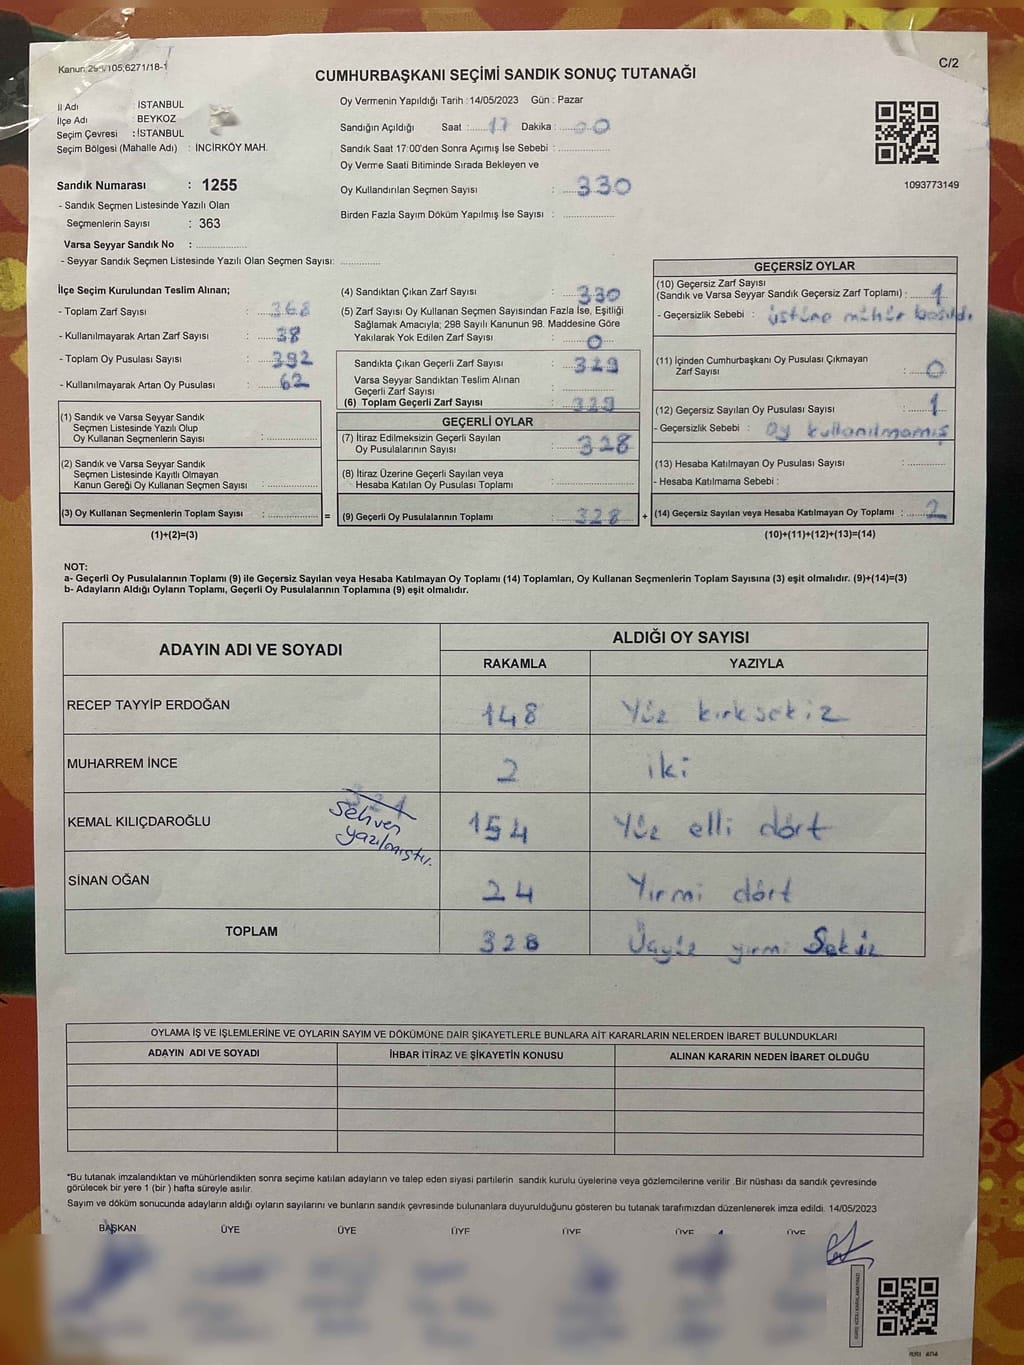 C/2
CUMHURBAŞKANI SEÇİMİ SANDIK SONUÇ TUTANAĞI
İl Adı : İSTANBUL
İlçe Adı : BEYKOZ
Seçim Çevresi : İSTANBUL
Seçim Bölgesi (Mahalle Adı) : İNCİRKÖY MAH.
Sandık Numarası : 1255
- Sandık Seçmen Listesinde Yazılı Olan
Seçmenlerin Sayısı : 363
Varsa Seyyar Sandık No :
- Seyyar Sandık Seçmen Listesinde Yazılı Olan Seçmen Sayısı:
Oy Vermenin Yapıldığı Tarih : 14/05/2023 Gün : Pazar
Sandığın Açıldığı Saat : 17 Dakika : 00
Sandık Saat 17:00'den Sonra Açımış İse Sebebi :
Oy Verme Saati Bitiminde Sırada Bekleyen ve
Oy Kullandırılan Seçmen Sayısı : 330
Birden Fazla Sayım Döküm Yapılmış İse Sayısı :
1093773149
İlçe Seçim Kurulundan Teslim Alınan;
- Toplam Zarf Sayısı : 368
- Kullanılmayarak Artan Zarf Sayısı : 38
- Toplam Oy Pusulası Sayısı : 392
- Kullanılmayarak Artan Oy Pusulası : 62
(1) Sandık ve Varsa Seyyar Sandık
Seçmen Listesinde Yazılı Olup
Oy Kullanan Seçmenlerin Sayısı :
(2) Sandık ve Varsa Seyyar Sandık
Seçmen Listesinde Kayıtlı Olmayan
Kanun Gereği Oy Kullanan Seçmen Sayısı :
(3) Oy Kullanan Seçmenlerin Toplam Sayısı : =
(1)+(2)=(3)
(4) Sandıktan Çıkan Zarf Sayısı : 330
(5) Zarf Sayısı Oy Kullanan Seçmen Sayısından Fazla İse, Eşitliği
Sağlamak Amacıyla; 298 Sayılı Kanunun 98. Maddesine Göre
Yakılarak Yok Edilen Zarf Sayısı : 0
Sandıkta Çıkan Geçerli Zarf Sayısı : 329
Varsa Seyyar Sandıktan Teslim Alınan
Geçerli Zarf Sayısı :
(6) Toplam Geçerli Zarf Sayısı : 329
GEÇERLİ OYLAR
(7) İtiraz Edilmeksizin Geçerli Sayılan
Oy Pusulalarının Sayısı : 328
(8) İtiraz Üzerine Geçerli Sayılan veya
Hesaba Katılan Oy Pusulası Toplamı :
(9) Geçerli Oy Pusulalarının Toplamı : 328 +
GEÇERSİZ OYLAR
(10) Geçersiz Zarf Sayısı
(Sandık ve Varsa Seyyar Sandık Geçersiz Zarf Toplamı) : 1
- Geçersizlik Sebebi : üstüne mühür basıldı
(11) İçinden Cumhurbaşkanı Oy Pusulası Çıkmayan
Zarf Sayısı : 0
(12) Geçersiz Sayılan Oy Pusulası Sayısı : 1
- Geçersizlik Sebebi : oy kullanılmamış
(13) Hesaba Katılmayan Oy Pusulası Sayısı :
- Hesaba Katılmama Sebebi :
(14) Geçersiz Sayılan veya Hesaba Katılmayan Oy Toplamı : 2
(10)+(11)+(12)+(13)=(14)
NOT:
a- Geçerli Oy Pusulalarının Toplamı (9) ile Geçersiz Sayılan veya Hesaba Katılmayan Oy Toplamı (14) Toplamları, Oy Kullanan Seçmenlerin Toplam Sayısına (3) eşit olmalıdır. (9)+(14)=(3)
b- Adayların Aldığı Oyların Toplamı, Geçerli Oy Pusulalarının Toplamına (9) eşit olmalıdır.
ADAYIN ADI VE SOYADI
ALDIĞI OY SAYISI
RAKAMLA YAZIYLA
RECEP TAYYİP ERDOĞAN 148 Yüz kırksekiz
MUHARREM İNCE 2 iki
KEMAL KILIÇDAROĞLU 154 Yüz elli dört
Sehven
yazılmıştır.
SİNAN OĞAN 24 Yirmi dört
TOPLAM 328 Üçyüz yirmi Sekiz
OYLAMA İŞ VE İŞLEMLERİNE VE OYLARIN SAYIM VE DÖKÜMÜNE DAİR ŞİKAYETLERLE BUNLARA AİT KARARLARIN NELERDEN İBARET BULUNDUKLARI
ADAYIN ADI VE SOYADI İHBAR İTİRAZ VE ŞİKAYETİN KONUSU ALINAN KARARIN NEDEN İBARET OLDUĞU
*Bu tutanak imzalandıktan ve mühürlendikten sonra seçime katılan adayların ve talep eden siyasi partilerin sandık kurulu üyelerine veya gözlemcilerine verilir .Bir nüshası da sandık çevresinde
görülecek bir yere 1 (bir ) hafta süreyle asılır.
Sayım ve döküm sonucunda adayların aldığı oyların sayılarını ve bunların sandık çevresinde bulunanlara duyurulduğunu gösteren bu tutanak tarafımızdan düzenlenerek imza edildi. 14/05/2023
BAŞKAN ÜYE ÜYE ÜYE ÜYE ÜYE ÜYE